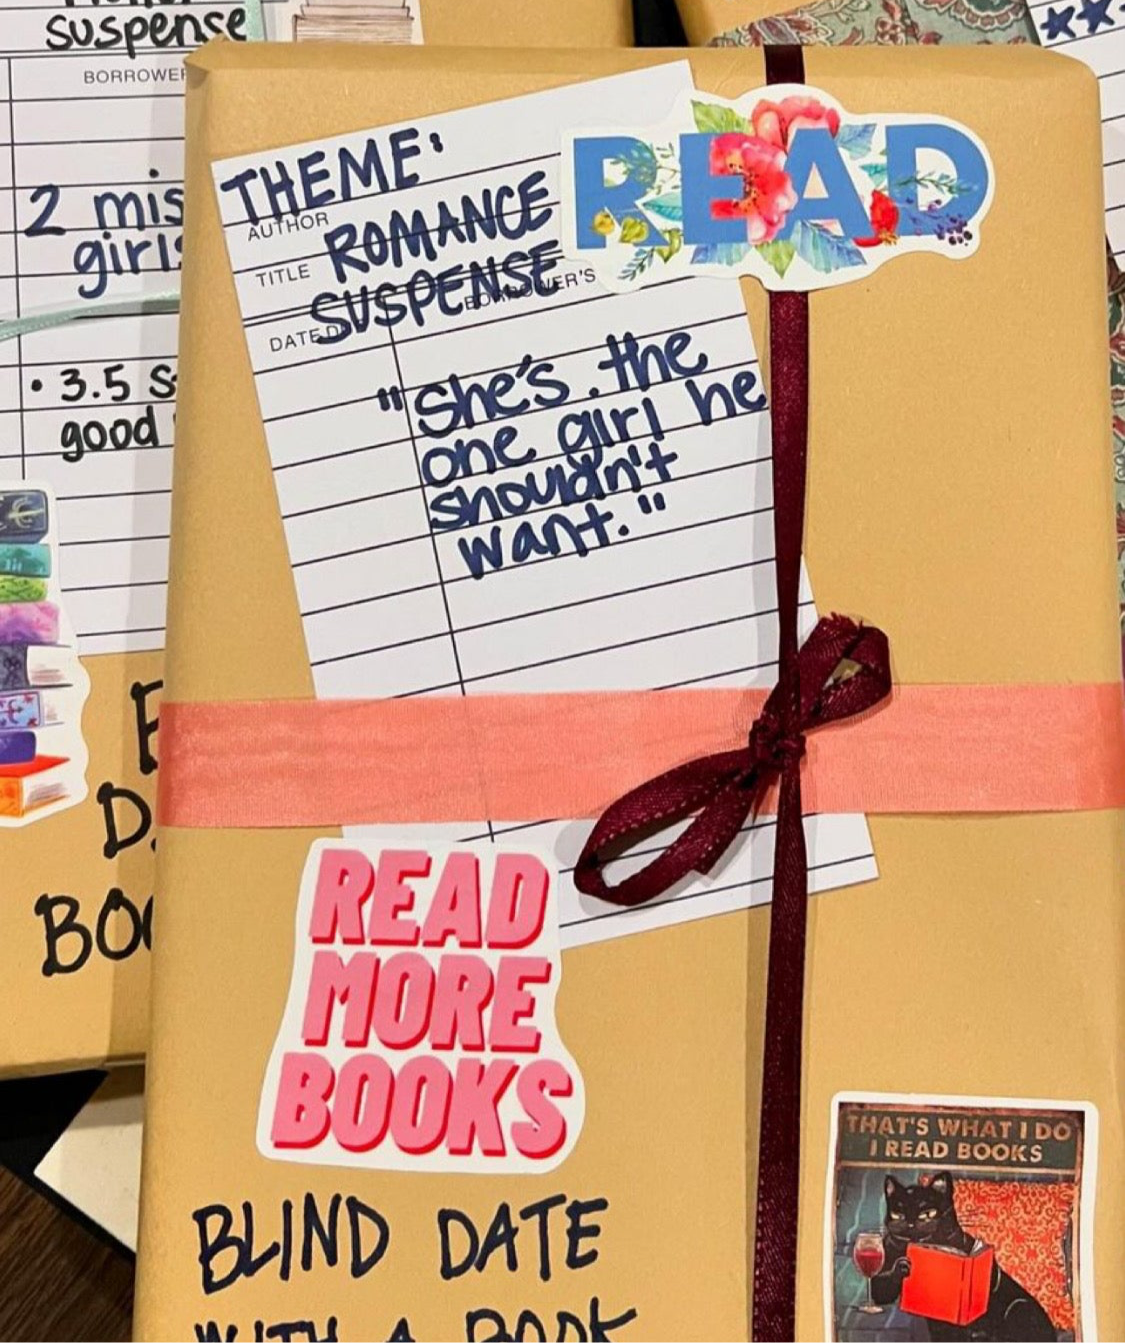 suspense
BORROWER
2 mis
girls
• 3.5 S
good
D
BOO
THEME:
AUTHOR
ROMANCE
TITLE
SUSPENSE
BORROWER'S
DATE D
"She's the
one girl he
shouldn't
want."
READ
READ
MORE
BOOKS
THAT'S WHAT I DO
I READ BOOKS
BLIND DATE
WITH A BOOK